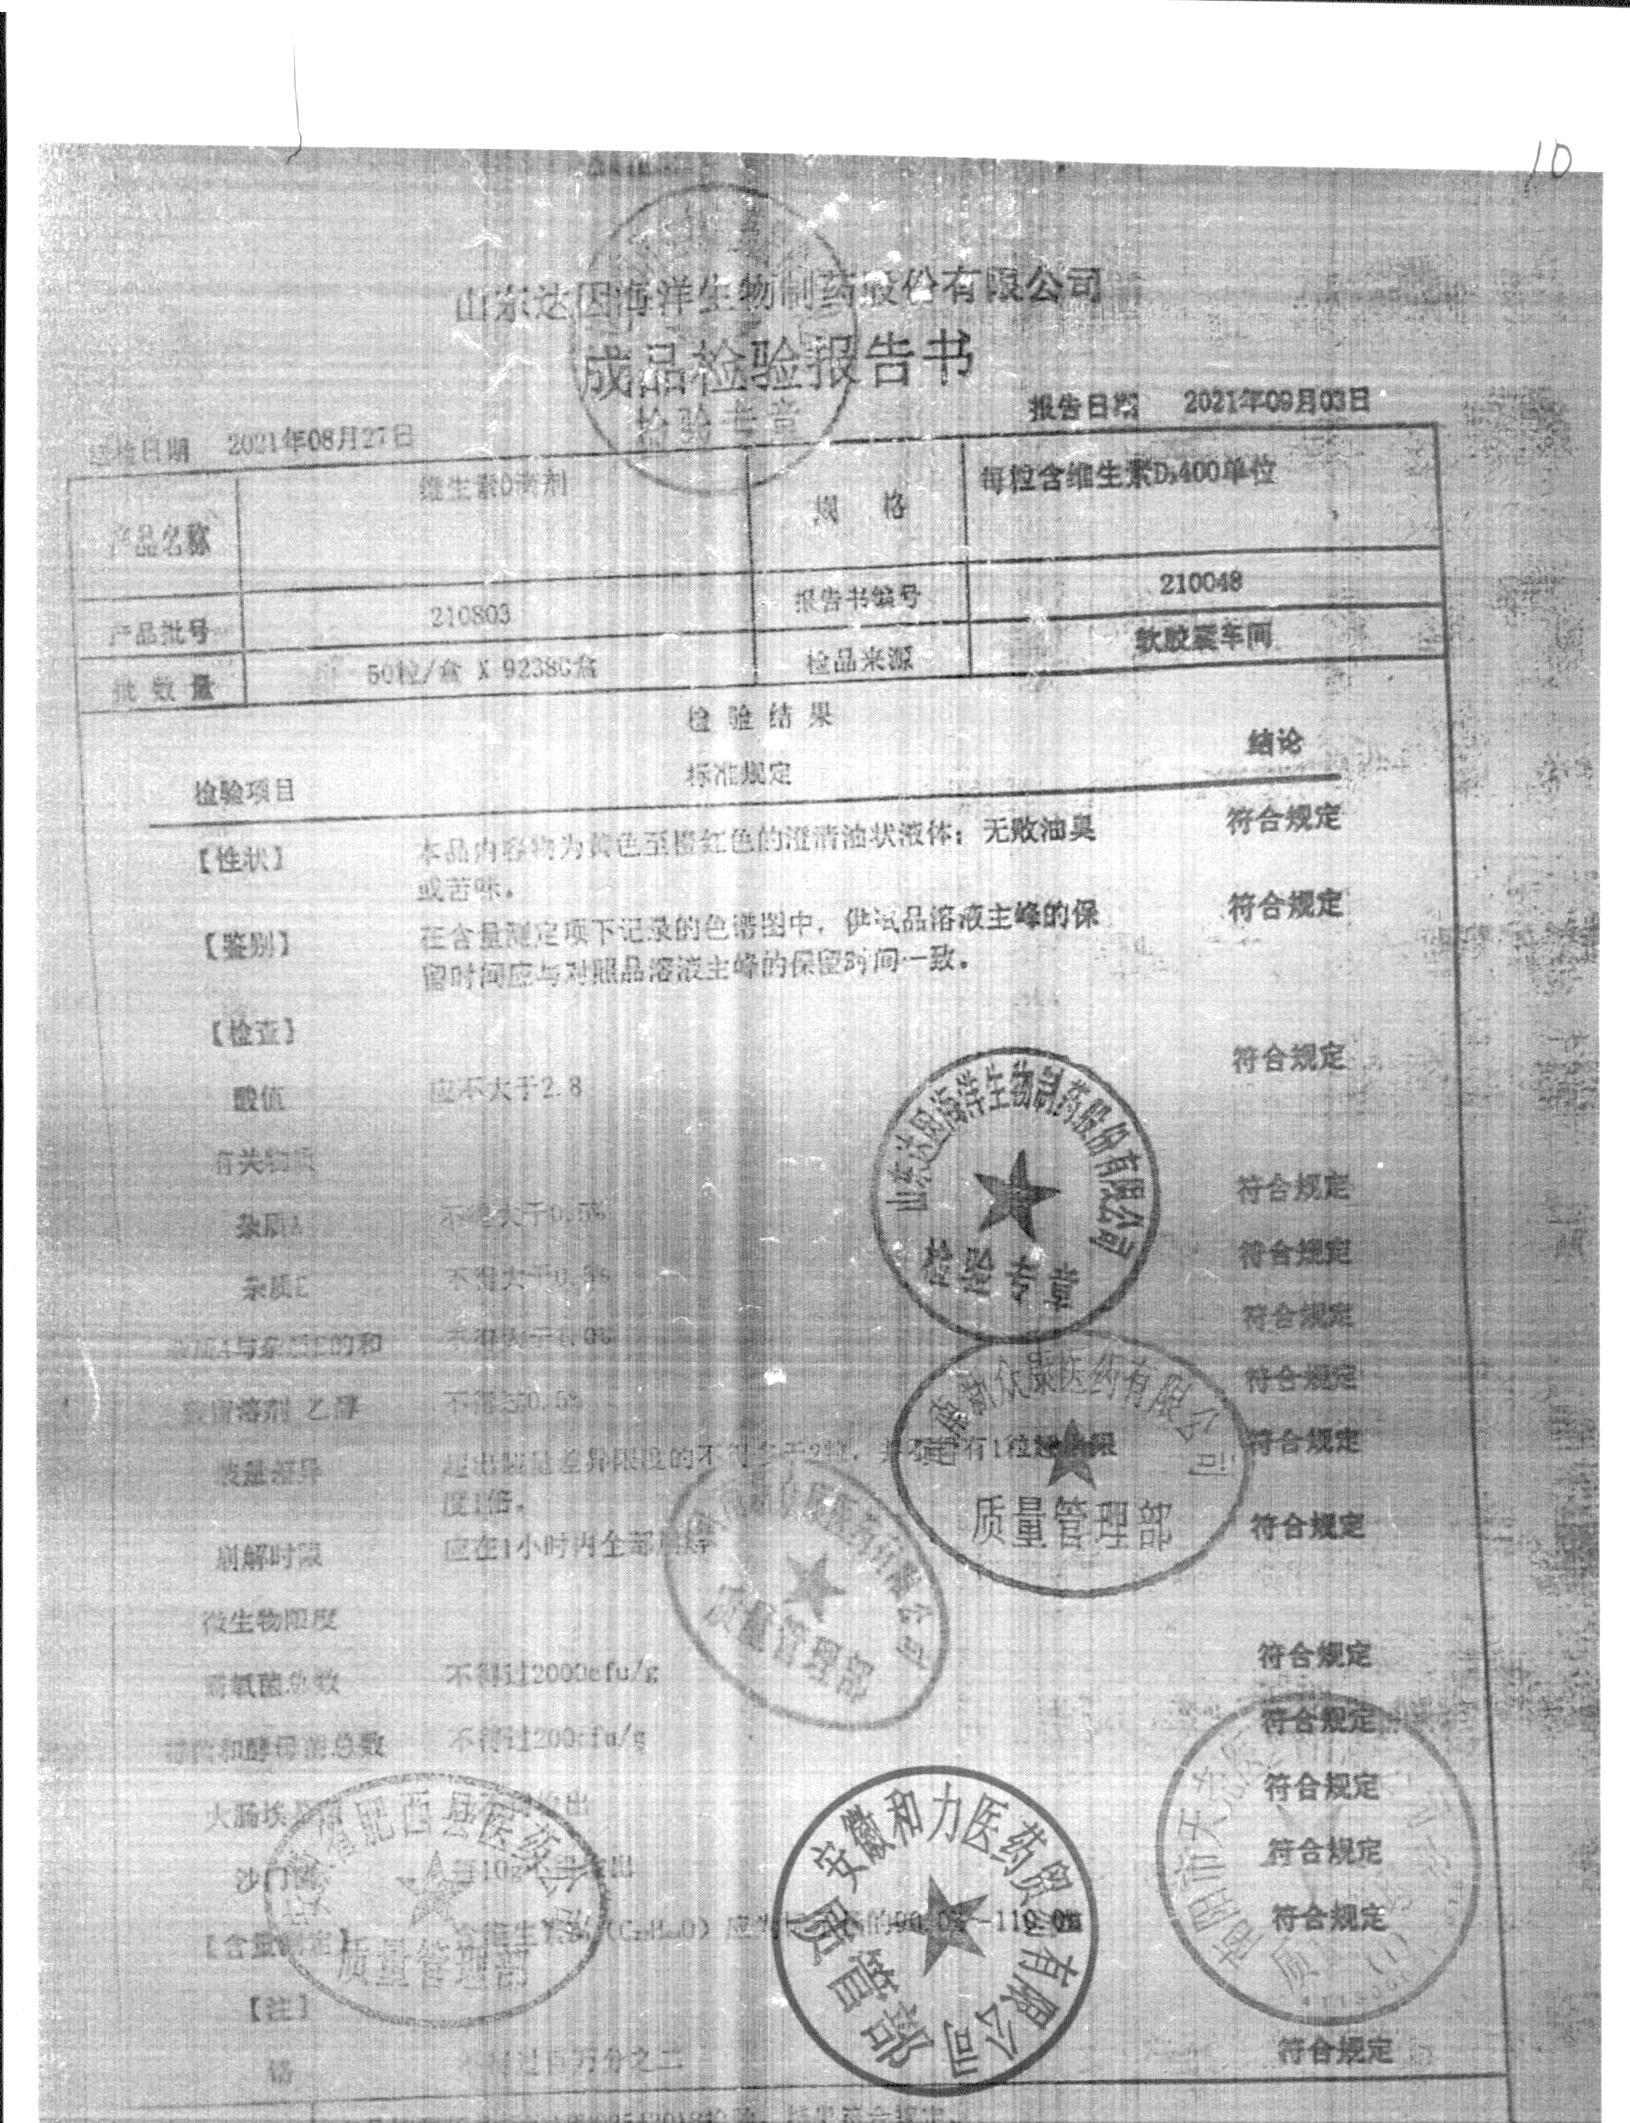 10
山东达因海洋生物制药股份有限公司
成品检验报告书
检验专章
报告日期 2021年09月03日
检日期 2021年08月27日
产品名称 维生素D滴剂 规 格 每粒含维生素D₃400单位
产品批号 210803 报告书编号 210048
批 数 量 50粒/盒 X 92380盒 检品来源 软胶囊车间
检 验 结 果
检验项目 标准规定 结论
【性状】 本品内容物为黄色至橙红色的澄清油状液体；无败油臭 符合规定
或苦味。
【鉴别】 在含量测定项下记录的色谱图中，供试品溶液主峰的保 符合规定
留时间应与对照品溶液主峰的保留时间一致。
【检查】
酸值 应不大于2.8 符合规定
有关物质
杂质A 不得大于0.5% 符合规定
杂质E 不得大于0.5% 符合规定
杂质A与杂质E的和 不得大于1.0% 符合规定
残留溶剂 乙醇 不得过0.5% 符合规定
装量差异 超出装量差异限度的不得多于2粒，并不得有1粒超出限 符合规定
度1倍。
崩解时限 应在1小时内全部崩解 符合规定
微生物限度
需氧菌总数 不得过2000cfu/g 符合规定
霉菌和酵母菌总数 不得过200cfu/g 符合规定
大肠埃 出 符合规定
沙门菌 每10g 出 符合规定
【含量测定】 含维生素 应为 的90.0%-110.0% 符合规定
【注】
铬 不得过百万分之二 符合规定
山东达因海洋生物制药股份有限公司
检验专章
众康医药有限公司
质量管理部
质量管理部
安徽省肥西县医药公司
质量管理部
安徽和力医药贸易有限公司
质管部
南阳市天
质
(1)